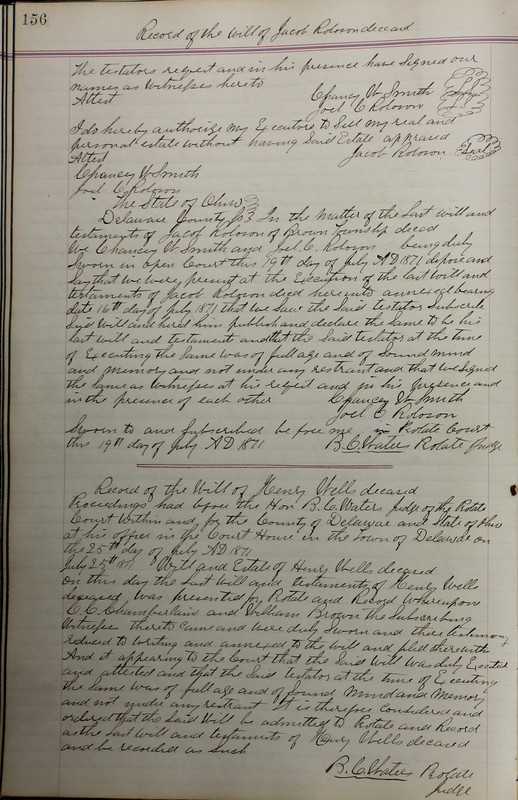 156
Record of the Will of Jacob Roloson deceasd
The testators request and in his presence have signed our
names as Witnesses hereto
Attest Chancey W Smith
Joel C Roloson
I do hereby authorize my Executors to Sell my real and
personal estate without having Said Estate appraised
Attest Jacob Roloson Seal
Chancey W Smith
Joel C Roloson
The State of Ohio
Delaware County ss In the Matter of the Last will and
testaments of Jacob Roloson of Brown Township decd
We Chancey W. Smith and Joel C. Roloson being duly
Sworn in open Court this 19th day of July AD 1871 depose and
Say that we were present at the Execution of the last will and
testaments of Jacob Roloson decd hereinto annexed bearing
date 16th day of July 1871 that we saw the Said testator Subscribe
Said Will and heard him publish and declare the Same to be his
last will and testaments and that the Said testator at the time
of Executing the Same was of full age and of Sound mind
and memory and not under any restraint and that we Signed
the Same as witnesses at his request and in his presence and
in the presence of each other Chancey W Smith
Joel C Roloson
Sworn to and Subscribed before me in Probate Court
this 19th day of July AD 1871 B. C. Waters Probate Judge
Record of the Will of Henry Wells deceasd
Proceedings had before the Hon B. C. Waters Judge of the Probate
Court Within and for the County of Delaware and State of Ohio
at his office in the Court House in the Town of Delaware on
the 25th day of July AD 1871
July 25th 1871 Will and Estate of Henry Wells deceased
On this day the Last Will and testaments of Henry Wells
deceased was presented for Probate and Record Whereupon
C. C. Chamberlain and William Brown the Subscribing
Witnesses thereto came and were duly Sworn and there testimony
reduced to writing and annexed to the will and filed therewith
And it appearing to the Court that the Said Will was duly Executed
and attested and that the Said testator at the time of Executing
the Same was of full age and of Sound Mind and Memory
and not under any restraint It is therefore Considered and
ordered that the Said Will be admitted to Probate and Record
as the last will and testaments of Henry Wells deceased
and be recorded as Such
B. C. Waters Probate
Judge